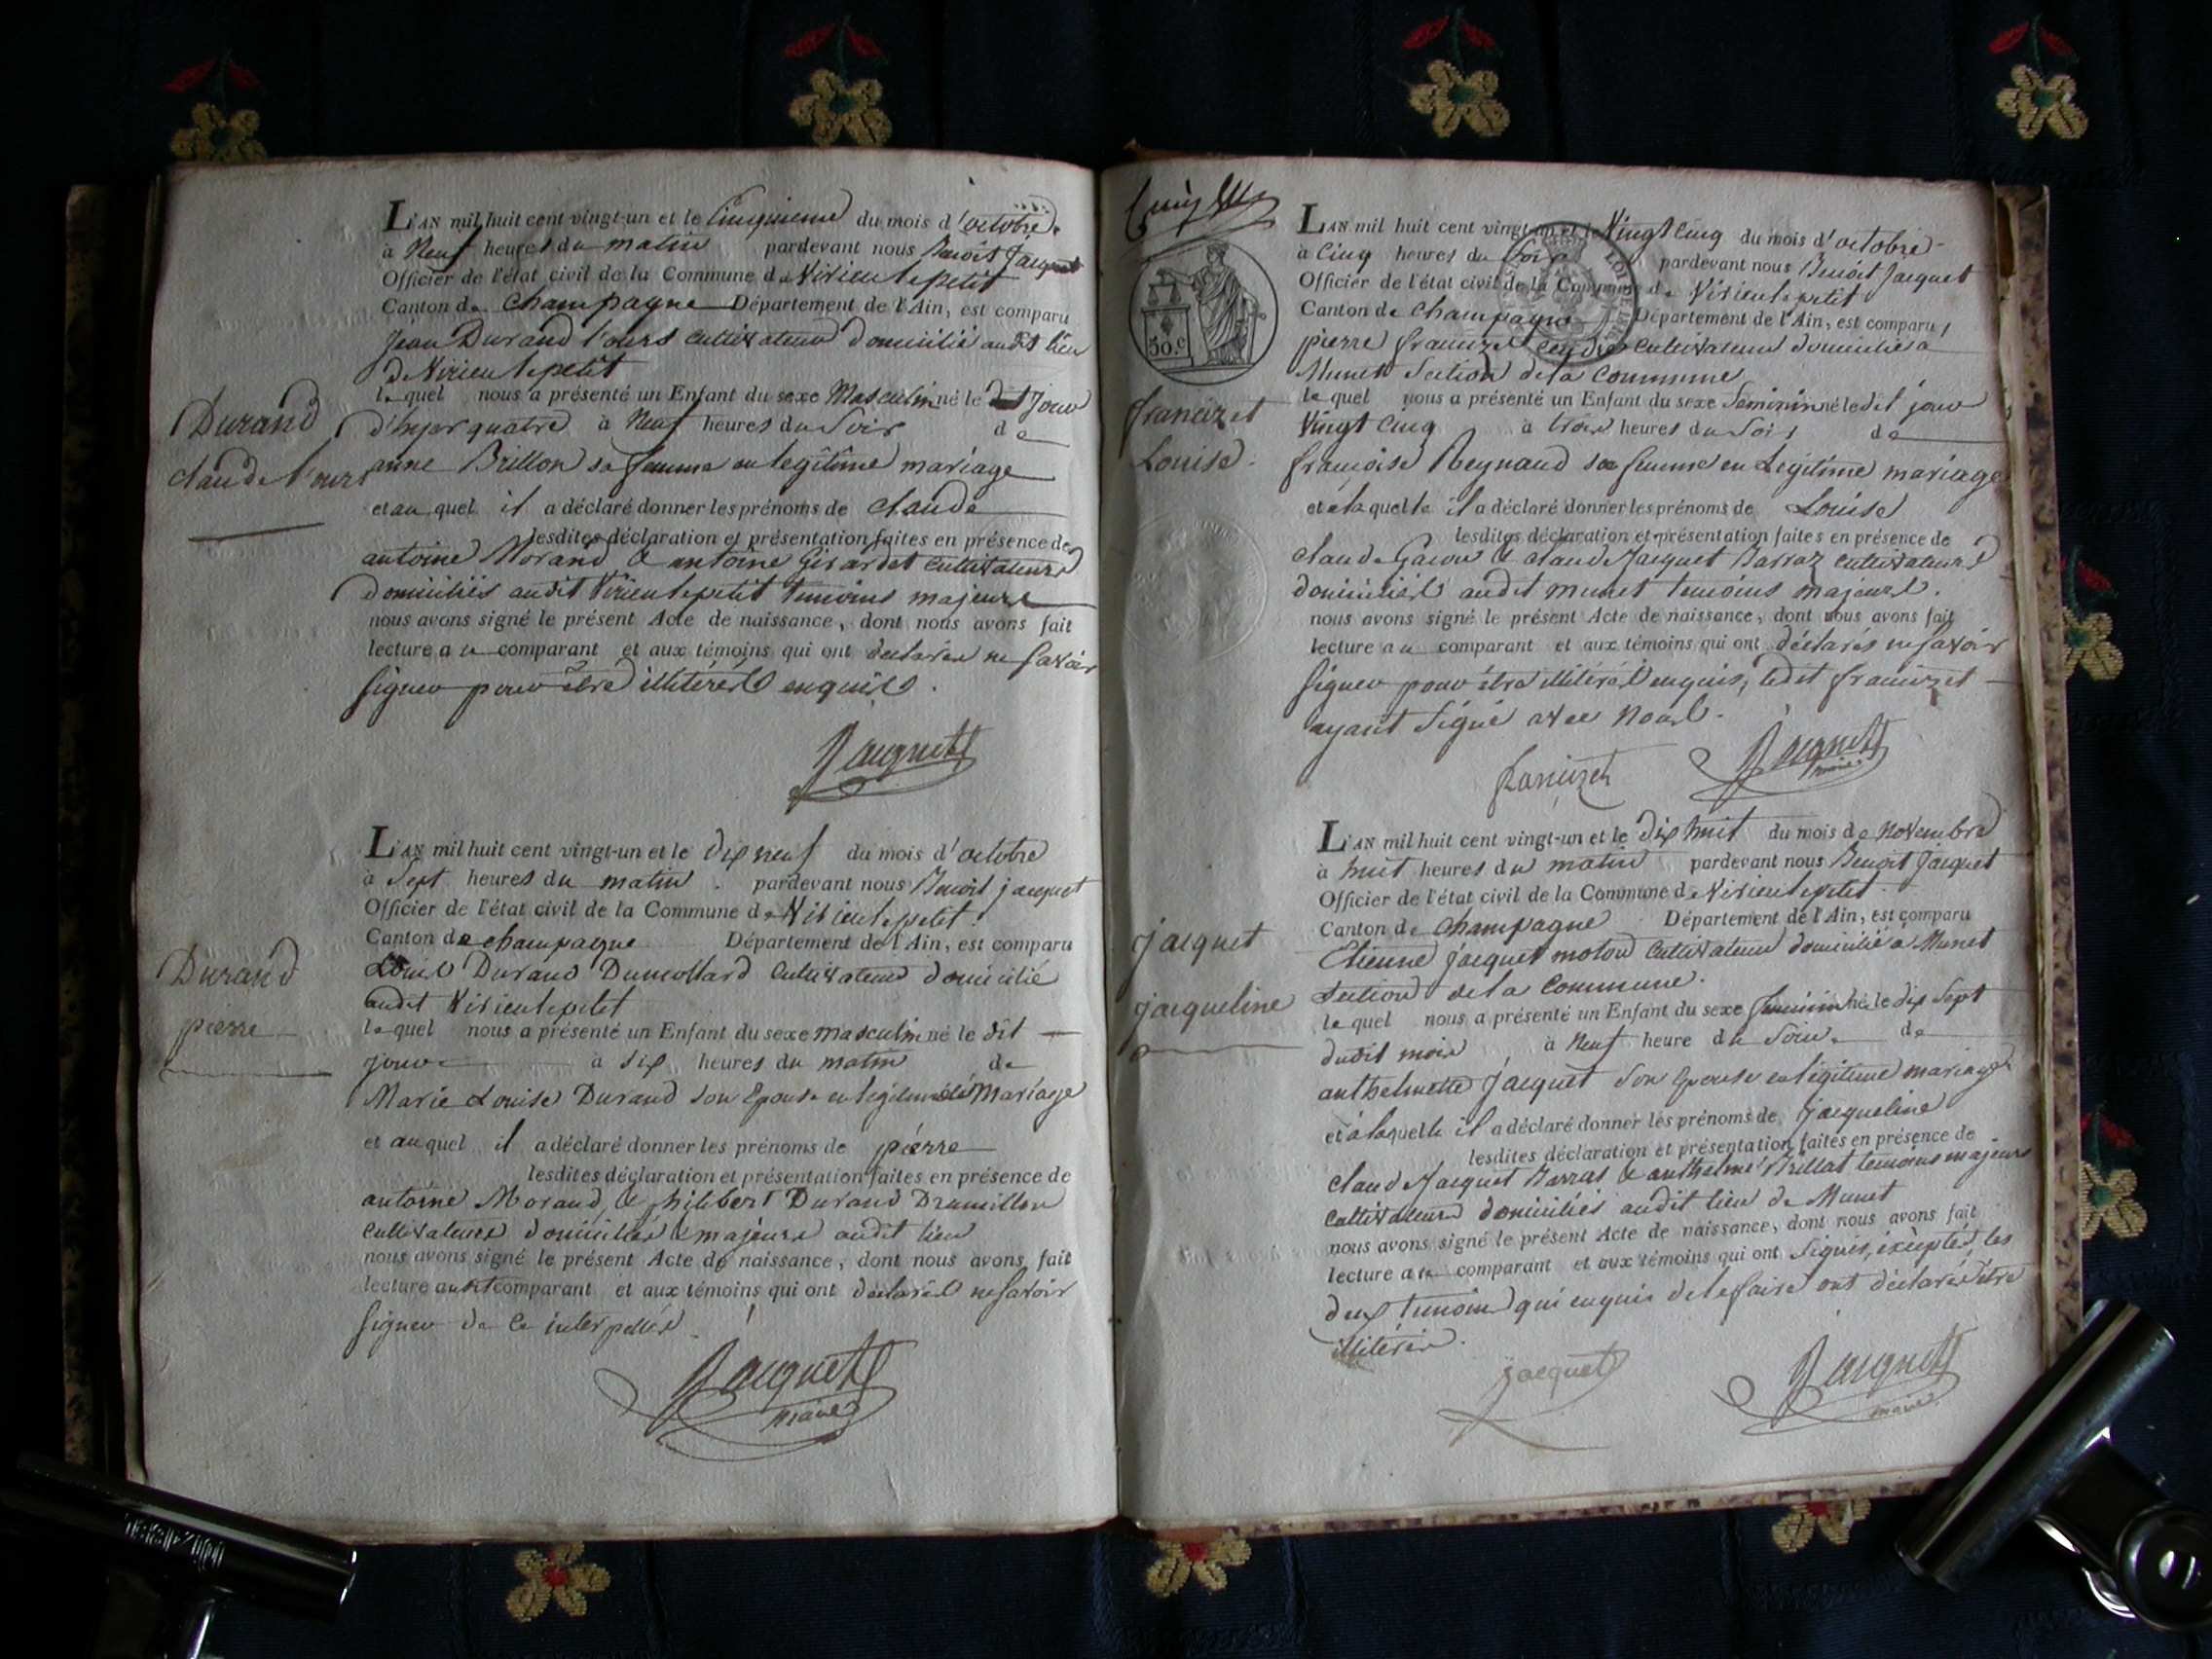 L'AN mil huit cent vingt-un et le Cinquieme du mois d'octobre
à Neuf heures du matin pardevant nous Benoit Jacquet
Officier de l'état civil de la Commune de Virieu le petit
Canton de Champagne Département de l'Ain, est comparu
Jean Durand l'ours cultivateur domicilié audit lieu
de Virieu le petit
lequel nous a présenté un Enfant du sexe Masculin né le dit Jour
Durand
d'hyer quatre à Neuf heures du Soir de
claude l'ours
anne Brillon sa femme en legitime mariage
et au quel il a déclaré donner les prénoms de claude
lesdites déclaration et présentation faites en présence de
antoine Morand & antoine Girardet cultivateurs
domiciliés audit Virieu le petit temoins majeurs
nous avons signé le présent Acte de naissance, dont nous avons fait
lecture a u comparant et aux témoins qui ont declarés ne Savoir
Signer pour être illitérés enquis.
Jacquet
L'AN mil huit cent vingt-un et le dix neuf du mois d'octobre
à Sept heures du matin . pardevant nous Benoit jacquet
Officier de l'état civil de la Commune de Virieu le petit.
Canton de champagne Département de l'Ain, est comparu
Durand
Louis Durand Dumollard Cultivateur domicilié
audit Virieu le petit
pierre
lequel nous a présenté un Enfant du sexe masculin né le dit
jour à Six heures du matin de
Marie Louise Durand son Epouse en légitime Mariage
et auquel il a déclaré donner les prénoms de pierre
lesdites déclaration et présentation faites en présence de
antoine Morand, & philibert Durand
Cultivateurs domiciliés & majeurs audit lieu
nous avons signé le présent Acte de naissance, dont nous avons fait
lecture audit comparant et aux témoins qui ont declarés ne Savoir
Signer de ce interpellés.
Jacquet
maire
50.c
L'AN mil huit cent vingt-un et le Vingt Cinq du mois d'octobre
à Cinq heures du Soir pardevant nous Benoit Jacquet
Officier de l'état civil de la Commune de Virieu le petit
Canton de Champagne Département de l'Ain, est comparu,
pierre francizet Cultivateur domicilié à
Munet Section de la Commune
francizet
lequel nous a présenté un Enfant du sexe Féminin né le dit jour
Vingt Cinq à trois heures du Soir de
Louise.
françoise Reynaud sa femme en Légitime mariage
et à laquelle il a déclaré donner les prénoms de Louise
lesdites déclaration et présentation faites en présence de
claude & claude Jacquet Barraz Cultivateurs
domiciliés audit munet temoins majeurs.
nous avons signé le présent Acte de naissance, dont nous avons fait
lecture a u comparant et aux témoins qui ont déclarés ne Savoir
Signer pour être illitérés enquis, ledit francizet
ayant Signé avec Nous.
francizet
Jacquet
maire
L'AN mil huit cent vingt-un et le dix huit du mois de Novembre
à huit heures du matin pardevant nous Benoit Jacquet
Officier de l'état civil de la Commune de Virieu le petit.
Canton de Champagne Département de l'Ain, est comparu
jacquet
Etienne jacquet molon Cultivateur domicilié à Munet
Section de la Commune.
jacqueline
lequel nous a présenté un Enfant du sexe feminin né le dix Sept
dudit mois à Neuf heure du Soir. de
anthelmette Jacquet son Epouse en légitime mariage
et à laquelle il a déclaré donner les prénoms de jacqueline
lesdites déclaration et présentation faites en présence de
claude Jacquet Barras & anthelme Brillat temoins majeurs
Cultivateurs domiciliés audit lieu de Munet
nous avons signé le présent Acte de naissance, dont nous avons fait
lecture a u comparant et aux témoins qui ont Signés, exceptés, les
deux temoins qui enquis de le faire ont déclarés être
illitérés.
jacquet
Jacquet
maire